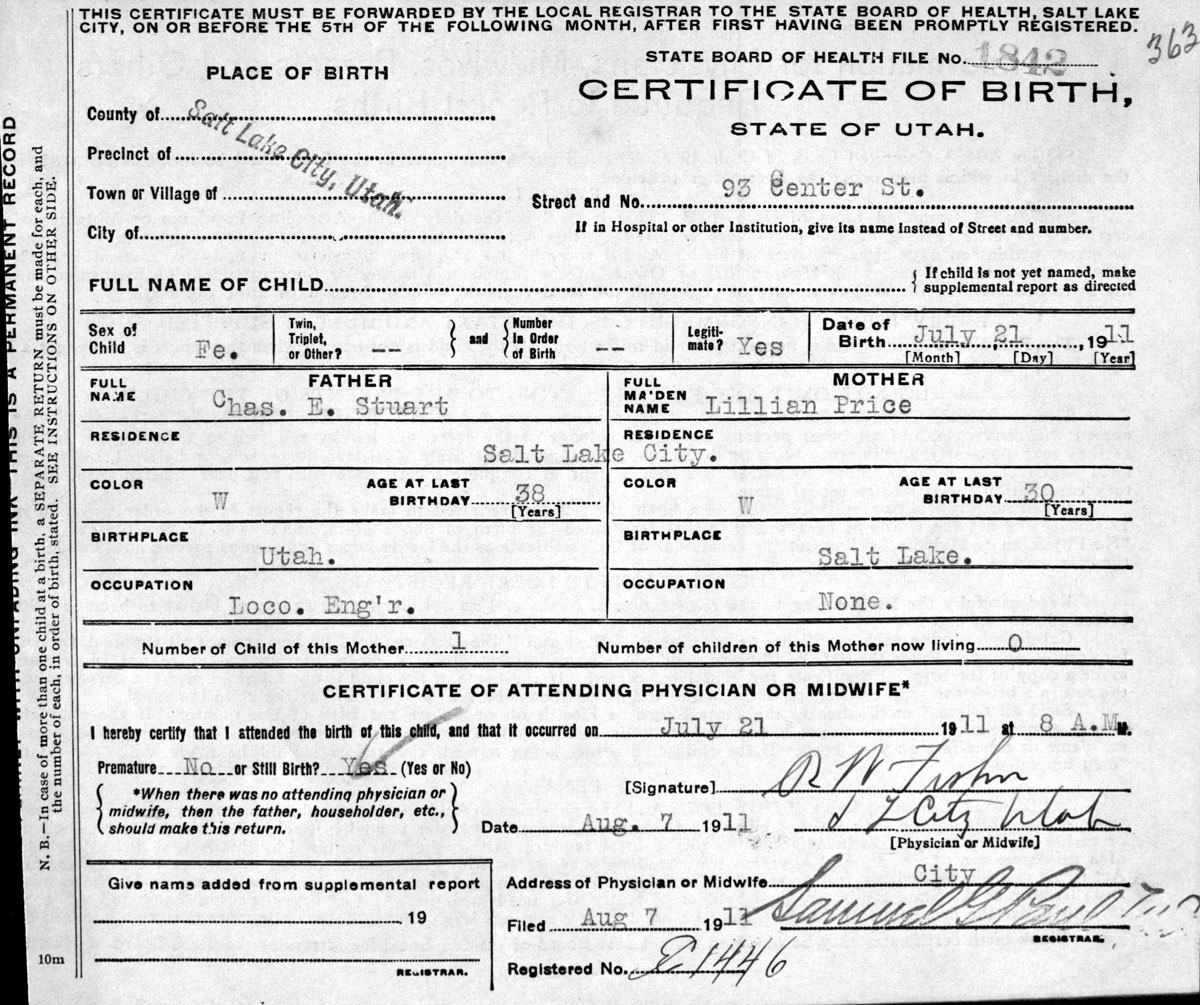 THIS CERTIFICATE MUST BE FORWARDED BY THE LOCAL REGISTRAR TO THE STATE BOARD OF HEALTH, SALT LAKE
CITY, ON OR BEFORE THE 5TH OF THE FOLLOWING MONTH, AFTER FIRST HAVING BEEN PROMPTLY REGISTERED.
363
STATE BOARD OF HEALTH FILE No. 1842
CERTIFICATE OF BIRTH,
STATE OF UTAH.
PLACE OF BIRTH
County of
Precinct of
Town or Village of
City of
Salt Lake City, Utah.
Street and No. 93 Center St.
If in Hospital or other Institution, give its name instead of Street and number.
FULL NAME OF CHILD
{ If child is not yet named, make
supplemental report as directed
Sex of Child Fe.
Twin, Triplet, or Other? --
{ and } Number in Order of Birth --
Legitimate? Yes
Date of Birth July 21, 1911
[Month] [Day] [Year]
FATHER
FULL NAME Chas. E. Stuart
MOTHER
FULL MAIDEN NAME Lillian Price
RESIDENCE RESIDENCE
Salt Lake City.
COLOR W AGE AT LAST BIRTHDAY 38 [Years]
COLOR W AGE AT LAST BIRTHDAY 30 [Years]
BIRTHPLACE Utah.
BIRTHPLACE Salt Lake.
OCCUPATION Loco. Eng'r.
OCCUPATION None.
Number of Child of this Mother 1 Number of children of this Mother now living 0
CERTIFICATE OF ATTENDING PHYSICIAN OR MIDWIFE*
I hereby certify that I attended the birth of this child, and that it occurred on July 21 1911 at 8 A.M.
Premature No or Still Birth? Yes (Yes or No)
{ *When there was no attending physician or
midwife, then the father, householder, etc.,
should make this return. }
[Signature] R W
Date Aug. 7 1911 City Utah
[Physician or Midwife]
Give name added from supplemental report
19
REGISTRAR.
Address of Physician or Midwife City
Filed Aug 7 1911 Samuel G Paul
REGISTRAR.
Registered No. 1446
10m
N. B.—In case of more than one child at a birth, a SEPARATE RETURN must be made for each, and
the number of each, in order of birth, stated. SEE INSTRUCTIONS ON OTHER SIDE.
UNFADING INK—THIS IS A PERMANENT RECORD